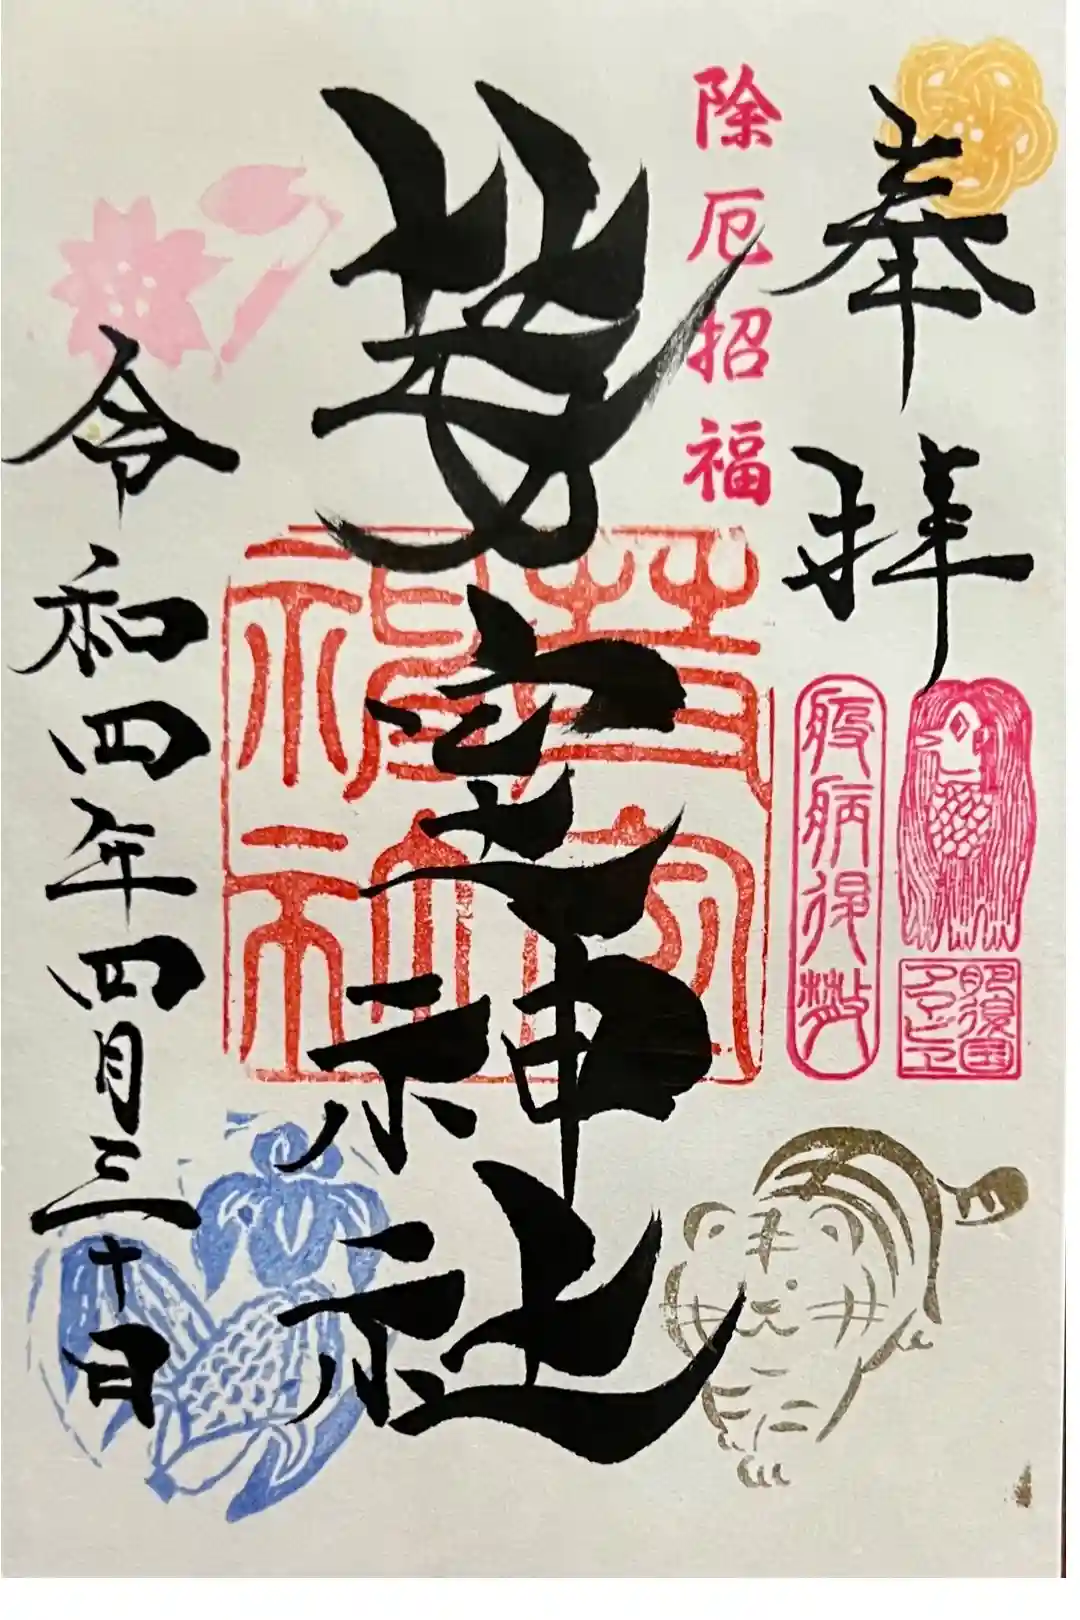 奉拝
除厄招福
神社
令和四年四月三十日
疫病退散
肥後国
アマビヱ